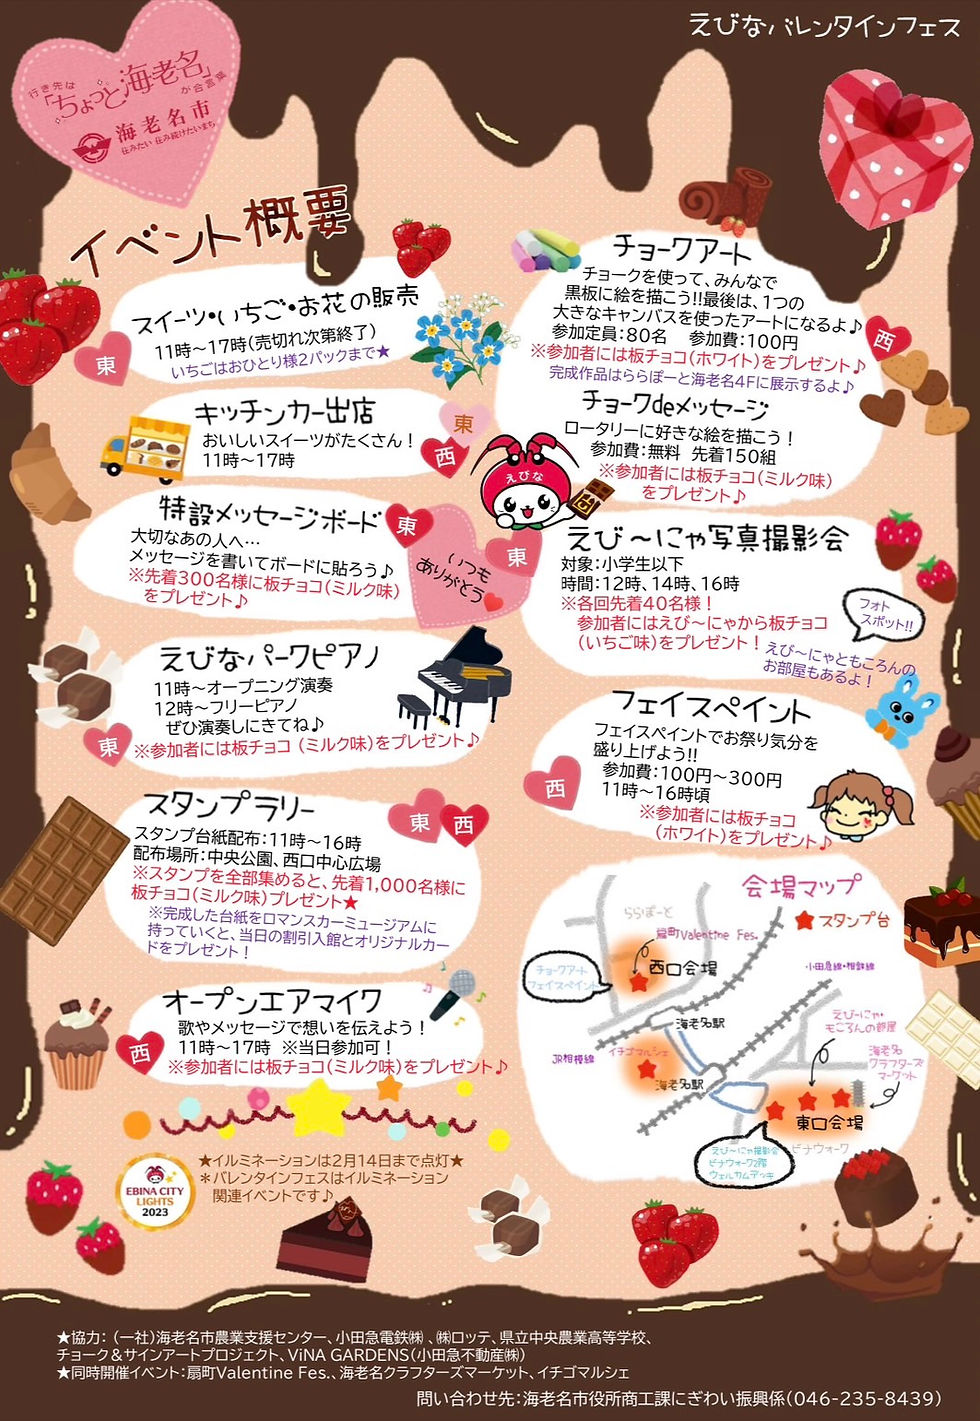 えびなバレンタインフェス
行き先は
「ちょっと海老名」
が合言葉
海老名市
住みたい 住み続けたいまち
イベント概要
スイーツ・いちご・お花の販売
11時～17時(売切れ次第終了)
いちごはおひとり様2パックまで★
東
キッチンカー出店
おいしいスイーツがたくさん！
11時～17時
東
西
特設メッセージボード
東
大切なあの人へ…
メッセージを書いてボードに貼ろう♪
※先着300名様に板チョコ(ミルク味)
をプレゼント♪
いつも
ありがとう
えびなパークピアノ
11時～オープニング演奏
12時～フリーピアノ
ぜひ演奏しにきてね♪
※参加者には板チョコ (ミルク味)をプレゼント♪
東
スタンプラリー
東 西
スタンプ台紙配布：11時～16時
配布場所：中央公園、西口中心広場
※スタンプを全部集めると、先着1,000名様に
板チョコ(ミルク味)プレゼント★
※完成した台紙をロマンスカーミュージアムに
持っていくと、当日の割引入館とオリジナルカー
ドをプレゼント！
オープンエアマイク
歌やメッセージで想いを伝えよう！
11時～17時 ※当日参加可！
※参加者には板チョコ(ミルク味)をプレゼント♪
西
★イルミネーションは2月14日まで点灯★
＊バレンタインフェスはイルミネーション
関連イベントです♪
EBINA CITY
LIGHTS
2023
チョークアート
チョークを使って、みんなで
黒板に絵を描こう!!最後は、1つの
大きなキャンバスを使ったアートになるよ♪
参加定員：80名 参加費：100円
※参加者には板チョコ(ホワイト)をプレゼント♪
完成作品はららぽーと海老名4Fに展示するよ♪
西
チョークdeメッセージ
ロータリーに好きな絵を描こう！
参加費：無料 先着150組
※参加者には板チョコ(ミルク味)
をプレゼント♪
えびな
東
えび～にゃ写真撮影会
対象：小学生以下
時間：12時、14時、16時
※各回先着40名様！
参加者にはえび～にゃから板チョコ
(いちご味)をプレゼント！
フォト
スポット!!
えび～にゃともころんの
お部屋もあるよ！
フェイスペイント
フェイスペイントでお祭り気分を
盛り上げよう!!
参加費：100円～300円
11時～16時頃
※参加者には板チョコ
(ホワイト)をプレゼント♪
西
会場マップ
★スタンプ台
ららぽーと
扇町Valentine Fes.
西口会場
チョークアート
フェイスペイント
小田急線・相鉄線
海老名駅
えび～にゃ・
もころんの部屋
JR相模線
イチゴマルシェ
海老名
クラフターズ
マーケット
海老名駅
東口会場
ビナウォーク
えび～にゃ撮影会
ビナウォーク2階
ウェルカムデッキ
★協力： (一社)海老名市農業支援センター、小田急電鉄㈱ 、㈱ロッテ、県立中央農業高等学校、
チョーク＆サインアートプロジェクト、ViNA GARDENS(小田急不動産㈱)
★同時開催イベント：扇町Valentine Fes.、海老名クラフターズマーケット、イチゴマルシェ
問い合わせ先：海老名市役所商工課にぎわい振興係(046-235-8439)